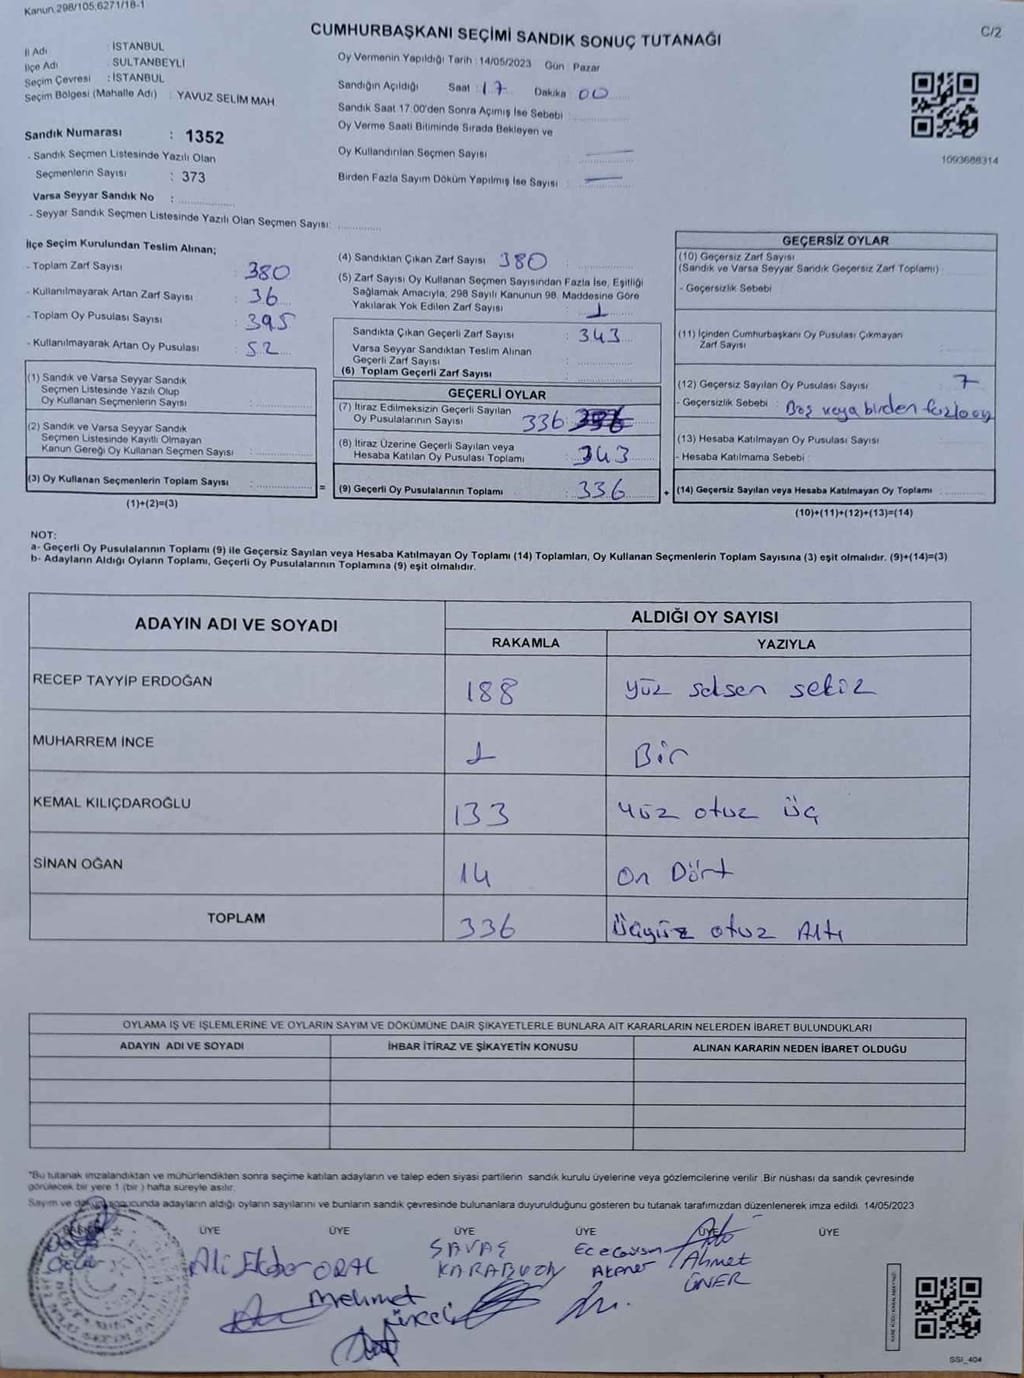 Kanun.298/105,6271/18-1
C/2
CUMHURBAŞKANI SEÇİMİ SANDIK SONUÇ TUTANAĞI
İl Adı : İSTANBUL
İlçe Adı : SULTANBEYLİ
Seçim Çevresi : İSTANBUL
Seçim Bölgesi (Mahalle Adı) : YAVUZ SELİM MAH.
Sandık Numarası : 1352
- Sandık Seçmen Listesinde Yazılı Olan
Seçmenlerin Sayısı : 373
Varsa Seyyar Sandık No :
- Seyyar Sandık Seçmen Listesinde Yazılı Olan Seçmen Sayısı:
Oy Vermenin Yapıldığı Tarih : 14/05/2023 Gün : Pazar
Sandığın Açıldığı Saat : 17 Dakika : 00
Sandık Saat 17:00'den Sonra Açımış İse Sebebi :
Oy Verme Saati Bitiminde Sırada Bekleyen ve
Oy Kullandırılan Seçmen Sayısı :
Birden Fazla Sayım Döküm Yapılmış İse Sayısı :
1093688314
İlçe Seçim Kurulundan Teslim Alınan;
- Toplam Zarf Sayısı : 380
- Kullanılmayarak Artan Zarf Sayısı : 36
- Toplam Oy Pusulası Sayısı : 395
- Kullanılmayarak Artan Oy Pusulası : 52
(1) Sandık ve Varsa Seyyar Sandık
Seçmen Listesinde Yazılı Olup
Oy Kullanan Seçmenlerin Sayısı :
(2) Sandık ve Varsa Seyyar Sandık
Seçmen Listesinde Kayıtlı Olmayan
Kanun Gereği Oy Kullanan Seçmen Sayısı :
(3) Oy Kullanan Seçmenlerin Toplam Sayısı :
(1)+(2)=(3)
=
(4) Sandıktan Çıkan Zarf Sayısı : 380
(5) Zarf Sayısı Oy Kullanan Seçmen Sayısından Fazla İse, Eşitliği
Sağlamak Amacıyla; 298 Sayılı Kanunun 98. Maddesine Göre
Yakılarak Yok Edilen Zarf Sayısı : 1
Sandıkta Çıkan Geçerli Zarf Sayısı : 343
Varsa Seyyar Sandıktan Teslim Alınan
Geçerli Zarf Sayısı :
(6) Toplam Geçerli Zarf Sayısı :
GEÇERLİ OYLAR
(7) İtiraz Edilmeksizin Geçerli Sayılan
Oy Pusulalarının Sayısı : 336
(8) İtiraz Üzerine Geçerli Sayılan veya
Hesaba Katılan Oy Pusulası Toplamı : 343
(9) Geçerli Oy Pusulalarının Toplamı : 336
+
GEÇERSİZ OYLAR
(10) Geçersiz Zarf Sayısı
(Sandık ve Varsa Seyyar Sandık Geçersiz Zarf Toplamı) :
- Geçersizlik Sebebi :
(11) İçinden Cumhurbaşkanı Oy Pusulası Çıkmayan
Zarf Sayısı :
(12) Geçersiz Sayılan Oy Pusulası Sayısı : 7
- Geçersizlik Sebebi : Boş veya birden fazla oy
(13) Hesaba Katılmayan Oy Pusulası Sayısı :
- Hesaba Katılmama Sebebi :
(14) Geçersiz Sayılan veya Hesaba Katılmayan Oy Toplamı :
(10)+(11)+(12)+(13)=(14)
NOT:
a- Geçerli Oy Pusulalarının Toplamı (9) ile Geçersiz Sayılan veya Hesaba Katılmayan Oy Toplamı (14) Toplamları, Oy Kullanan Seçmenlerin Toplam Sayısına (3) eşit olmalıdır. (9)+(14)=(3)
b- Adayların Aldığı Oyların Toplamı, Geçerli Oy Pusulalarının Toplamına (9) eşit olmalıdır.
ADAYIN ADI VE SOYADI
ALDIĞI OY SAYISI
RAKAMLA YAZIYLA
RECEP TAYYİP ERDOĞAN 188 yüz seksen sekiz
MUHARREM İNCE 1 Bir
KEMAL KILIÇDAROĞLU 133 yüz otuz üç
SİNAN OĞAN 14 On Dört
TOPLAM 336 Üçyüz otuz Altı
OYLAMA İŞ VE İŞLEMLERİNE VE OYLARIN SAYIM VE DÖKÜMÜNE DAİR ŞİKAYETLERLE BUNLARA AİT KARARLARIN NELERDEN İBARET BULUNDUKLARI
ADAYIN ADI VE SOYADI İHBAR İTİRAZ VE ŞİKAYETİN KONUSU ALINAN KARARIN NEDEN İBARET OLDUĞU
"Bu tutanak imzalandıktan ve mühürlendikten sonra seçime katılan adayların ve talep eden siyasi partilerin sandık kurulu üyelerine veya gözlemcilerine verilir .Bir nüshası da sandık çevresinde
görülecek bir yere 1 (bir ) hafta süreyle asılır.
Sayım ve döküm sonucunda adayların aldığı oyların sayılarını ve bunların sandık çevresinde bulunanlara duyurulduğunu gösteren bu tutanak tarafımızdan düzenlenerek imza edildi. 14/05/2023
ÜYE ÜYE ÜYE ÜYE ÜYE ÜYE
Ali Ekber ORAL
Mehmet
SAVAŞ
Ahmet
ÖNER
SSI_404